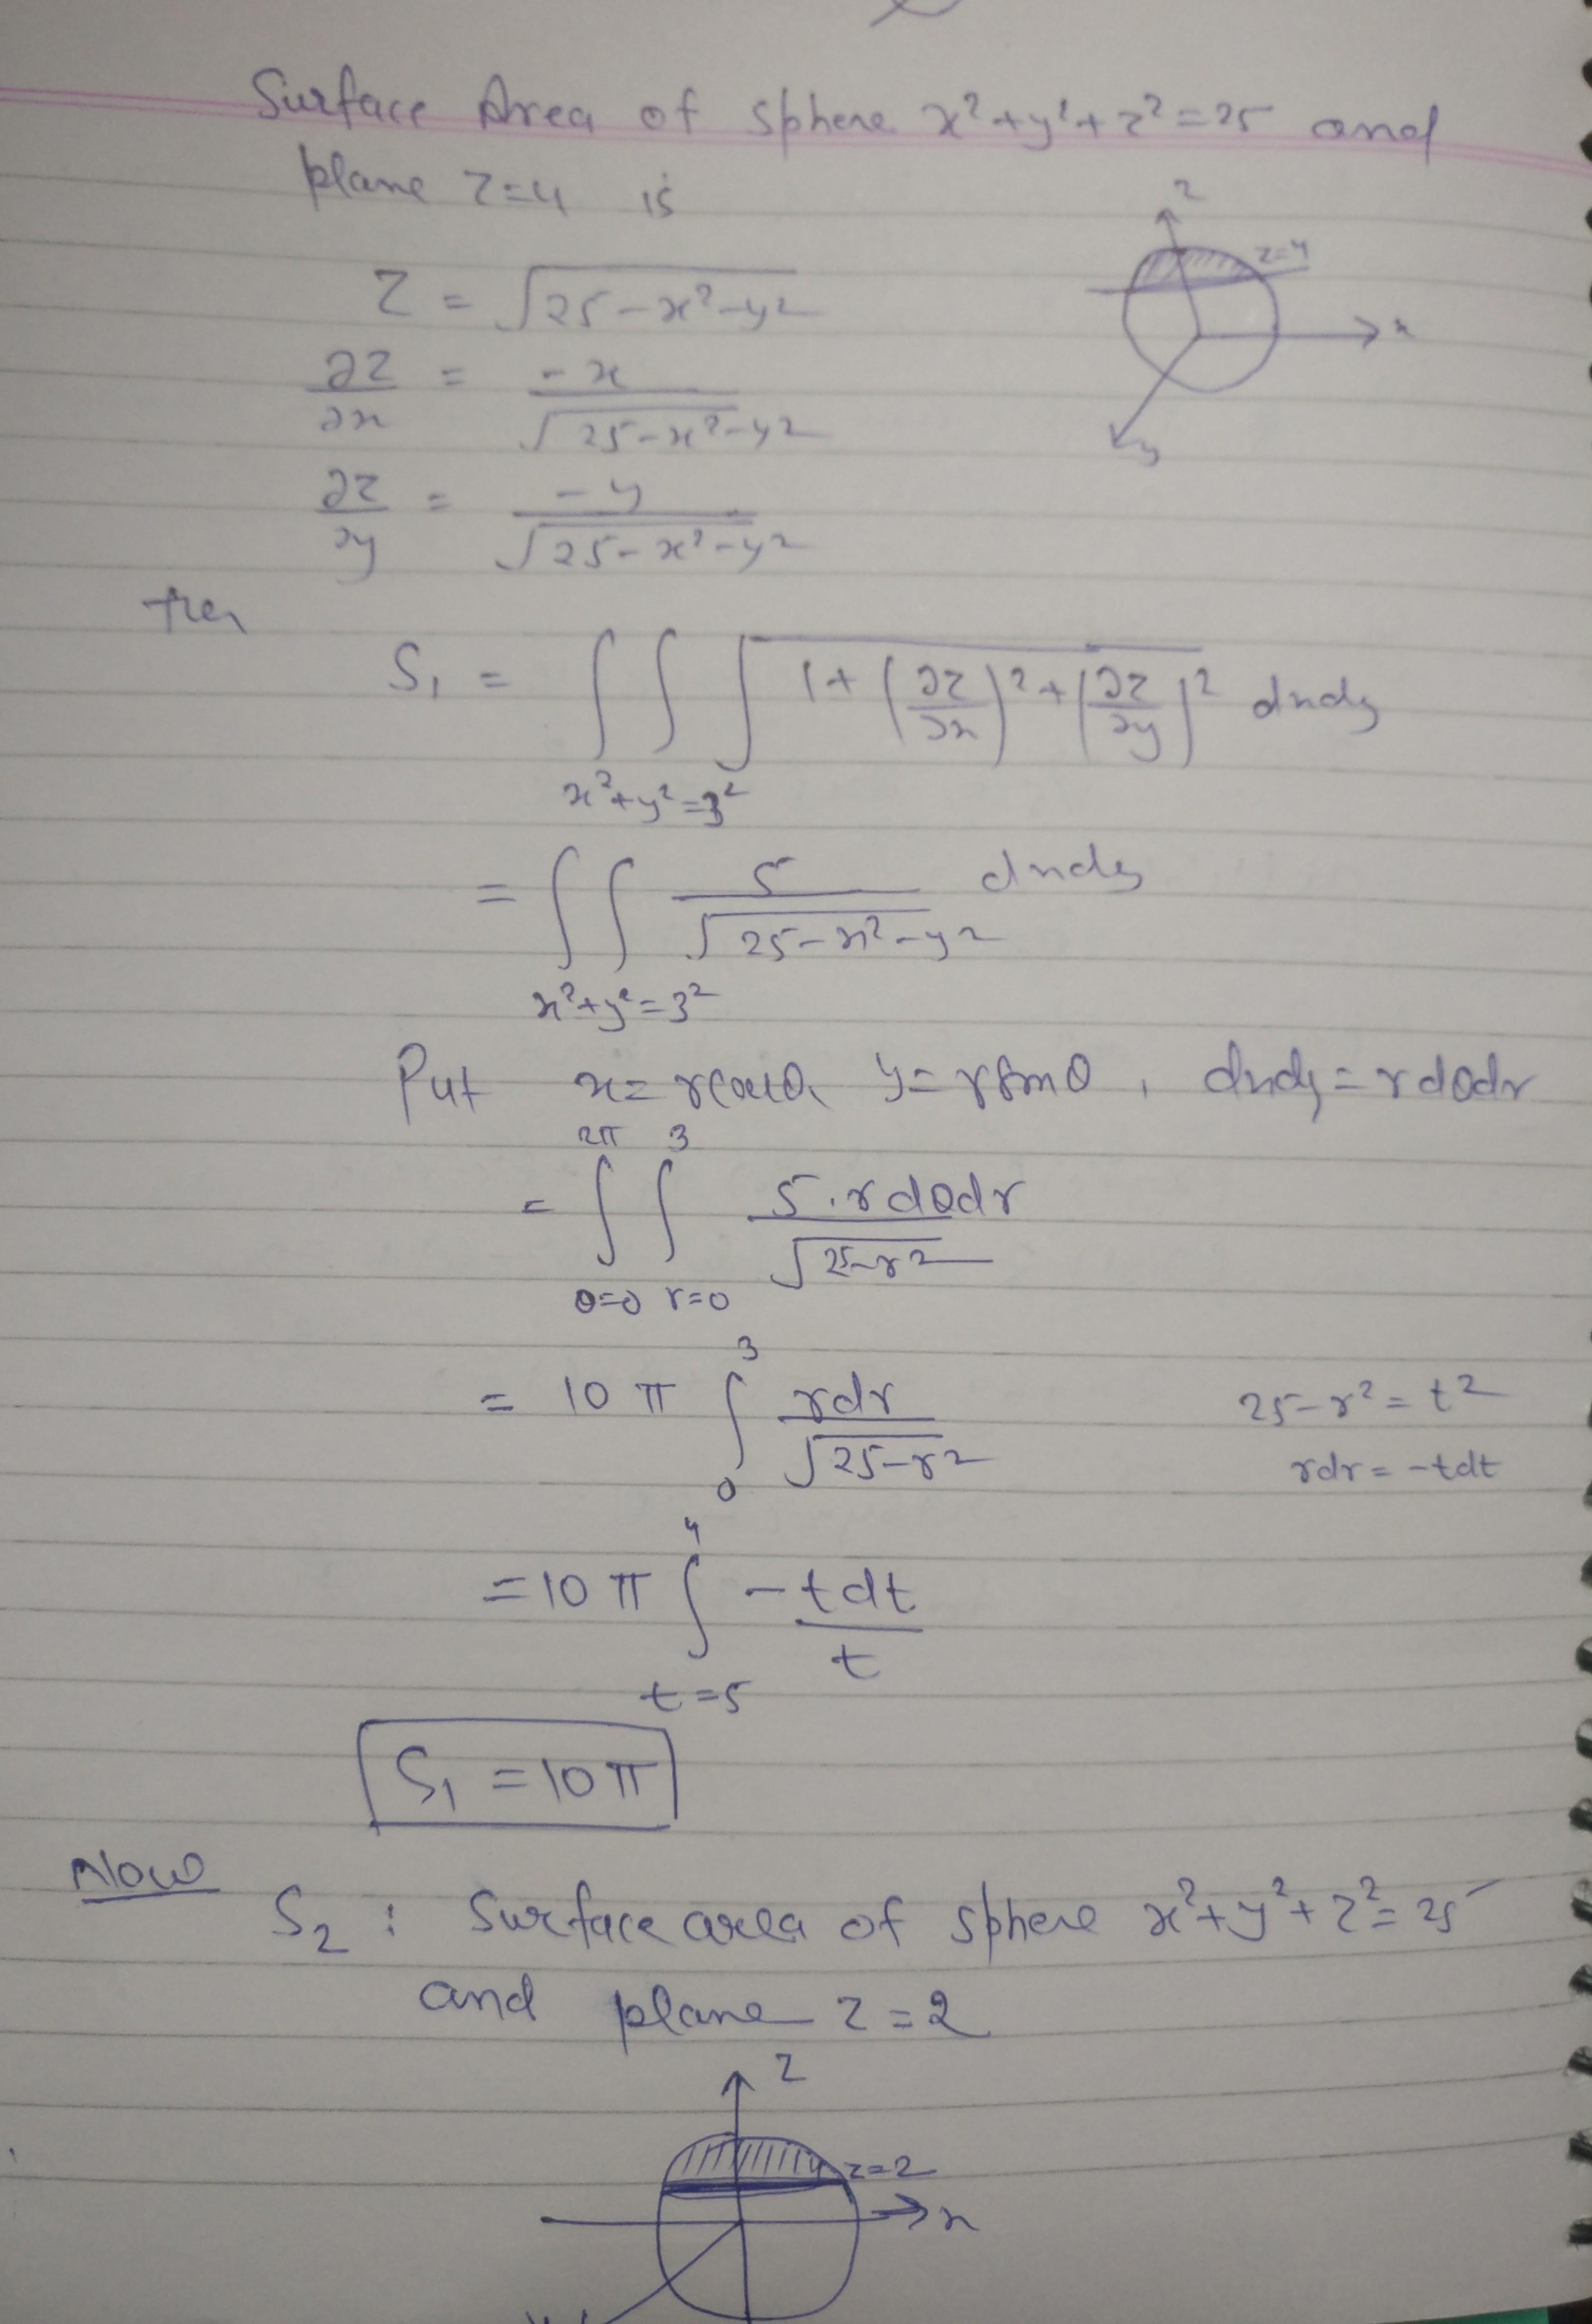 Surface Area of sphere x²+y²+z²=25 and
plane z=4 is
z
z=4
x
y
z = √25-x²-y²
∂z/∂x = -x/√25-x²-y²
∂z/∂y = -y/√25-x²-y²
then
S₁ = ∫∫ √1+(∂z/∂x)²+(∂z/∂y)² dxdy
x²+y²=3²
= ∫∫ 5/√25-x²-y² dxdy
x²+y²=3²
Put x=rcosθ, y=rsinθ, dxdy=rdθdr
2π 3
= ∫∫ 5.rdθdr/√25-r²
θ=0 r=0
3
= 10π ∫ rdr/√25-r² 25-r²=t²
0 rdr=-tdt
4
=10π ∫ -tdt/t
t=5
S₁ =10π
Now
S₂ : Surface area of sphere x²+y²+z²=25
and plane z=2
z
z=2
x
y